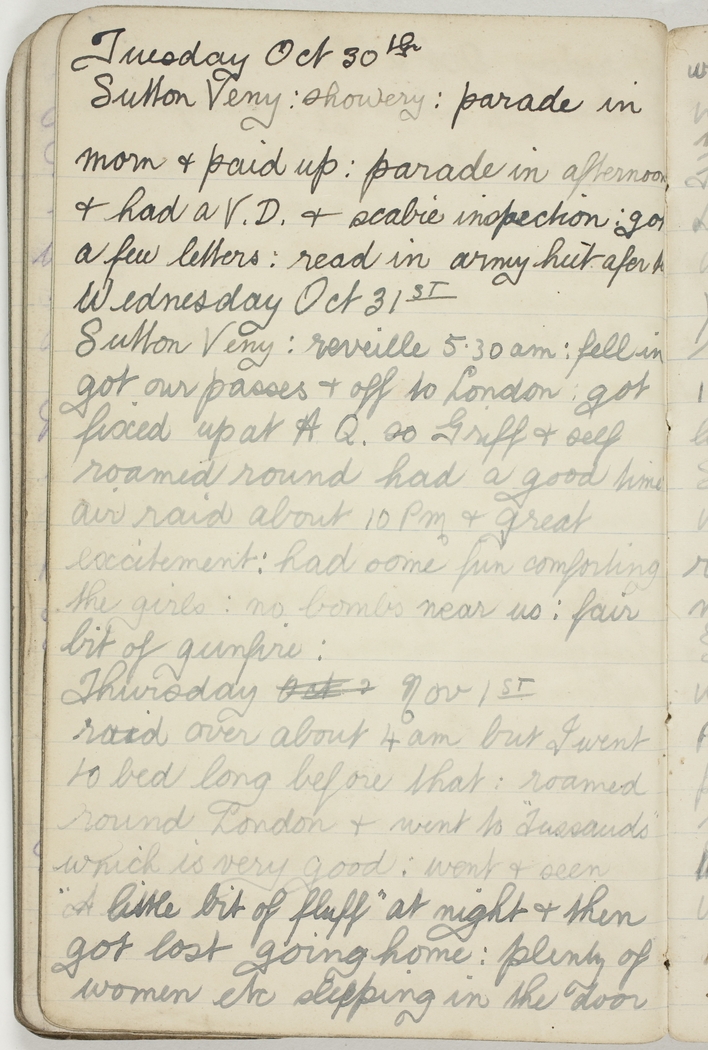 Tuesday Oct 30th
Sutton Veny : showery : parade in
morn & paid up : parade in afternoon
& had a V.D. & scabie inspection : got
a few letters : read in army hut after
Wednesday Oct 31ST
Sutton Veny : reveille 5.30 am : fell in
got our passes & off to London : got
fixed up at A Q. so Griff & self
roamed round had a good time
air raid about 10 Pm & great
excitement : had some fun comforting
the girls : no bombs near us : fair
bit of gunfire :
Thursday Nov 1ST
raid over about 4 am but I went
to bed long before that : roamed
round London & went to "Tussauds"
which is very good : went & seen
"A little bit of fluff" at night & then
got lost going home : plenty of
women etc sleeping in the door